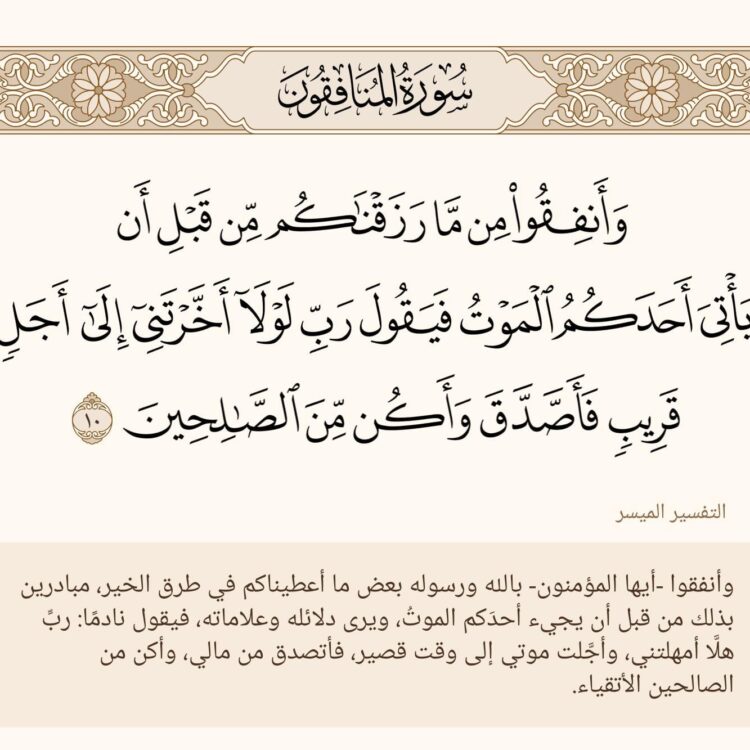 سُورَةُ المُنَافِقُونَ
وَأَنفِقُوا۟ مِن مَّا رَزَقْنَـٰكُم مِّن قَبْلِ أَن
يَأْتِىَ أَحَدَكُمُ ٱلْمَوْتُ فَيَقُولَ رَبِّ لَوْلَآ أَخَّرْتَنِىٓ إِلَىٰٓ أَجَلٍ
قَرِيبٍ فَأَصَّدَّقَ وَأَكُن مِّنَ ٱلصَّـٰلِحِينَ ١٠
التفسير الميسر
وأنفقوا -أيها المؤمنون- بالله ورسوله بعض ما أعطيناكم في طرق الخير، مبادرين
بذلك من قبل أن يجيء أحدَكم الموتُ، ويرى دلائله وعلاماته، فيقول نادمًا: ربِّ
هلَّا أمهلتني، وأجَّلت موتي إلى وقت قصير، فأتصدق من مالي، وأكن من
الصالحين الأتقياء.